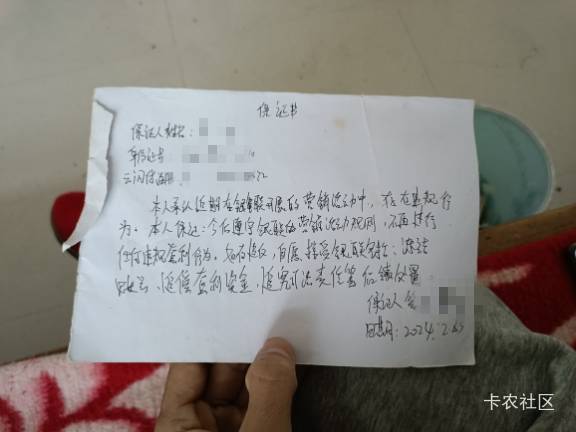 保证书
保证人姓名:
身份证号:
云闪付注册:
本人承认近期在银联开展的营销活动中，存在违规行
为。本人保证:今后遵守银联的营销活动规则，不再进行
任何违规套利行为。如有违反，自愿接受银联包括:冻结
账号、追偿套利资金、追究司法责任等后续处置。
保证人签
日期: 2024.2.
卡农社区